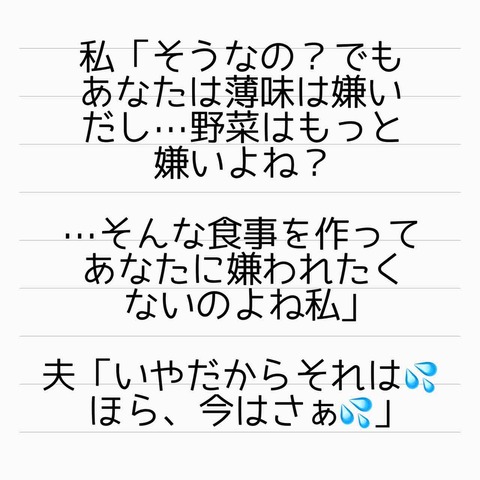 私「そうなの？でも
あなたは薄味は嫌い
だし…野菜はもっと
嫌いよね？
…そんな食事を作って
あなたに嫌われたく
ないのよね私」
夫「いやだからそれは💦
ほら、今はさぁ💦」